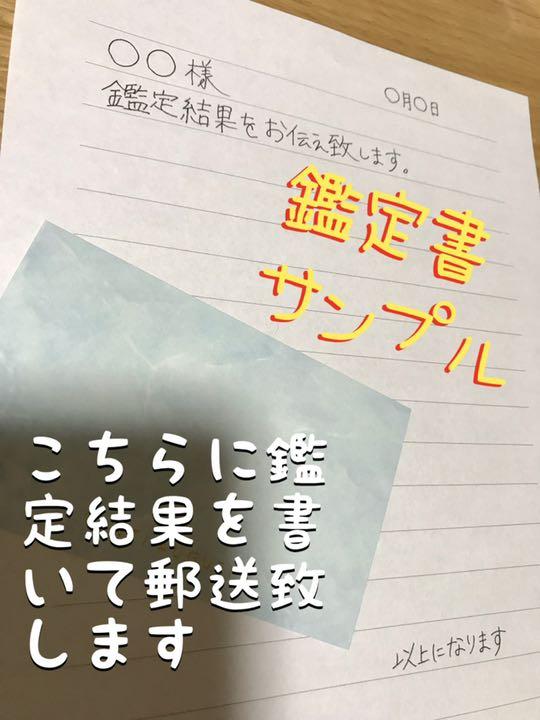 〇〇様
〇月〇日
鑑定結果をお伝え致します。
鑑定書
サンプル
こちらに鑑
定結果を書
いて郵送致
します
以上になります